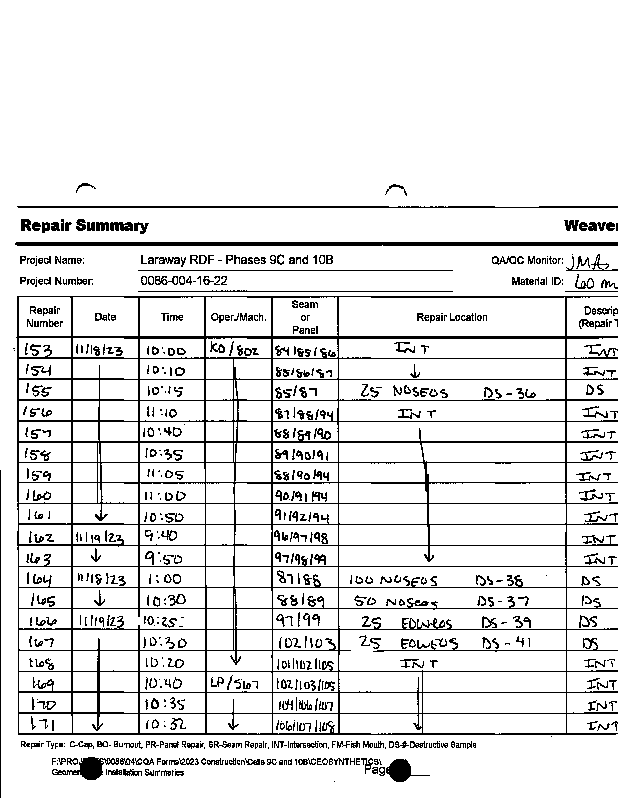 Repair Summary Weaver
Project Name: Laraway RDF - Phases 9C and 10B QA/QC Monitor: JMA
Project Number: 0086-004-16-22 Material ID: 60 m
Repair Number Date Time Oper./Mach. Seam or Panel Repair Location Descrip (Repair T
153 11/18/23 10:00 KO/802 84/85/86 INT INT
154 10:10 85/86/87 INT
155 10:15 85/87 25 NOSEOS DS-36 DS
156 11:10 87/88/94 INT INT
157 10:40 88/89/90 INT
158 10:35 89/90/91 INT
159 11:05 88/90/94 INT
160 11:00 90/91/94 INT
161 10:50 91/92/94 INT
162 11/19/23 9:40 96/97/98 INT
163 9:50 97/98/99 INT
164 11/18/23 1:00 87/88 100 NOSEOS DS-38 DS
165 10:30 88/89 50 NOSEOS DS-37 DS
166 11/19/23 10:25 97/99 25 DS-39 DS
167 10:30 102/103 25 DS-41 DS
168 10:20 101/102/105 INT INT
169 10:40 LP/567 102/103/105 INT
170 10:35 104/106/107 INT
171 10:32 106/107/108 INT
Repair Type: C-Cap, BO- Burnout, PR-Panel Repair, SR-Seam Repair, INT-Intersection, FM-Fish Mouth, DS-#-Destructive Sample
F:\PROJ 0086\04\CQA Forms\2023 Construction\Cells 9C and 10B\GEOSYNTHETICS\
Geomem Installation Summaries Page